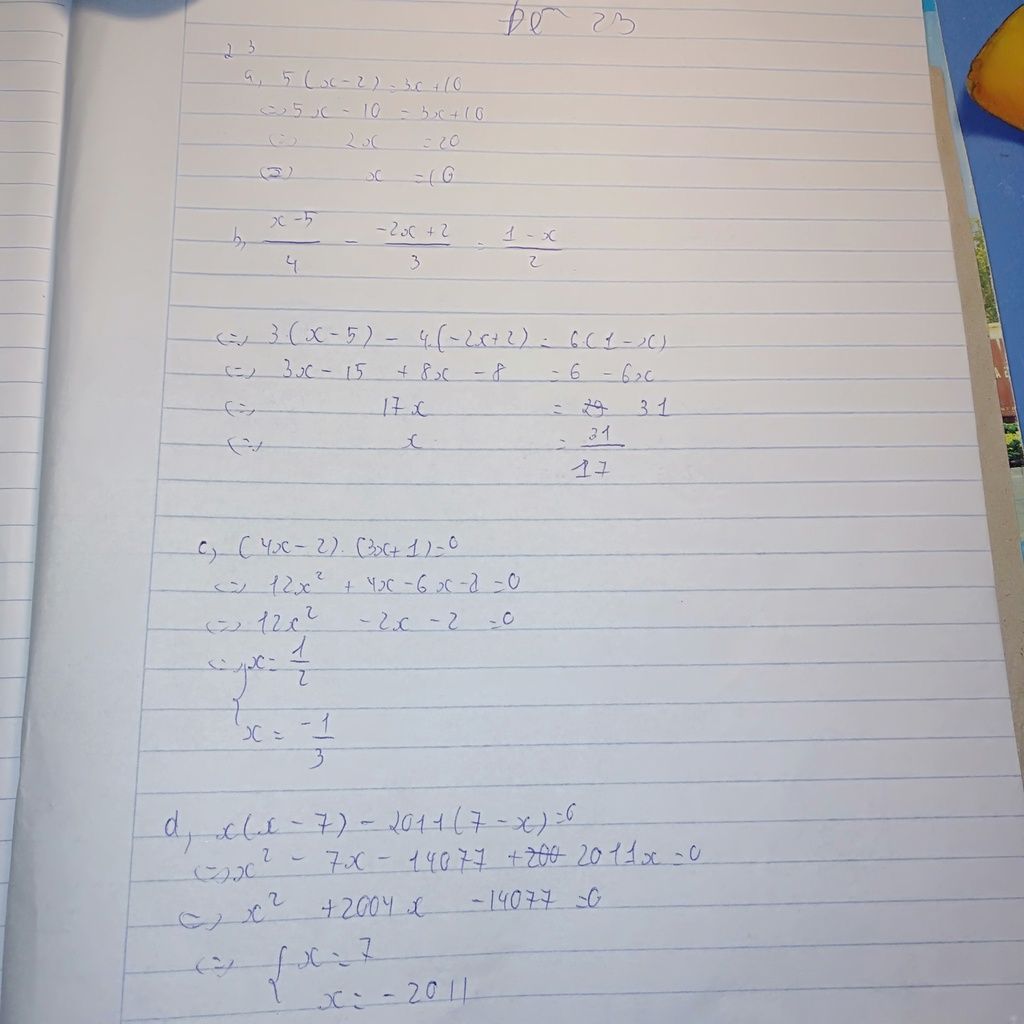 23
2 3
a, 5(x-2)=3x+10
<=> 5x - 10 = 3x+10
<=> 2x = 20
<=> x = 10
b, \frac{x-5}{4} - \frac{-2x+2}{3} = \frac{1-x}{2}
<=> 3.(x-5) - 4.(-2x+2) = 6.(1-x)
<=> 3x - 15 + 8x - 8 = 6 - 6x
<=> 17x = 31
<=> x = \frac{31}{17}
c, (4x-2).(3x+1)=0
<=> 12x² + 4x - 6x - 2 = 0
<=> 12x² - 2x - 2 = 0
<=> { x = \frac{1}{2}
x = \frac{-1}{3}
d, x(x-7) - 2011(7-x)=0
<=> x² - 7x - 14077 + 2011x = 0
<=> x² + 2004x - 14077 = 0
<=> { x = 7
x = -2011